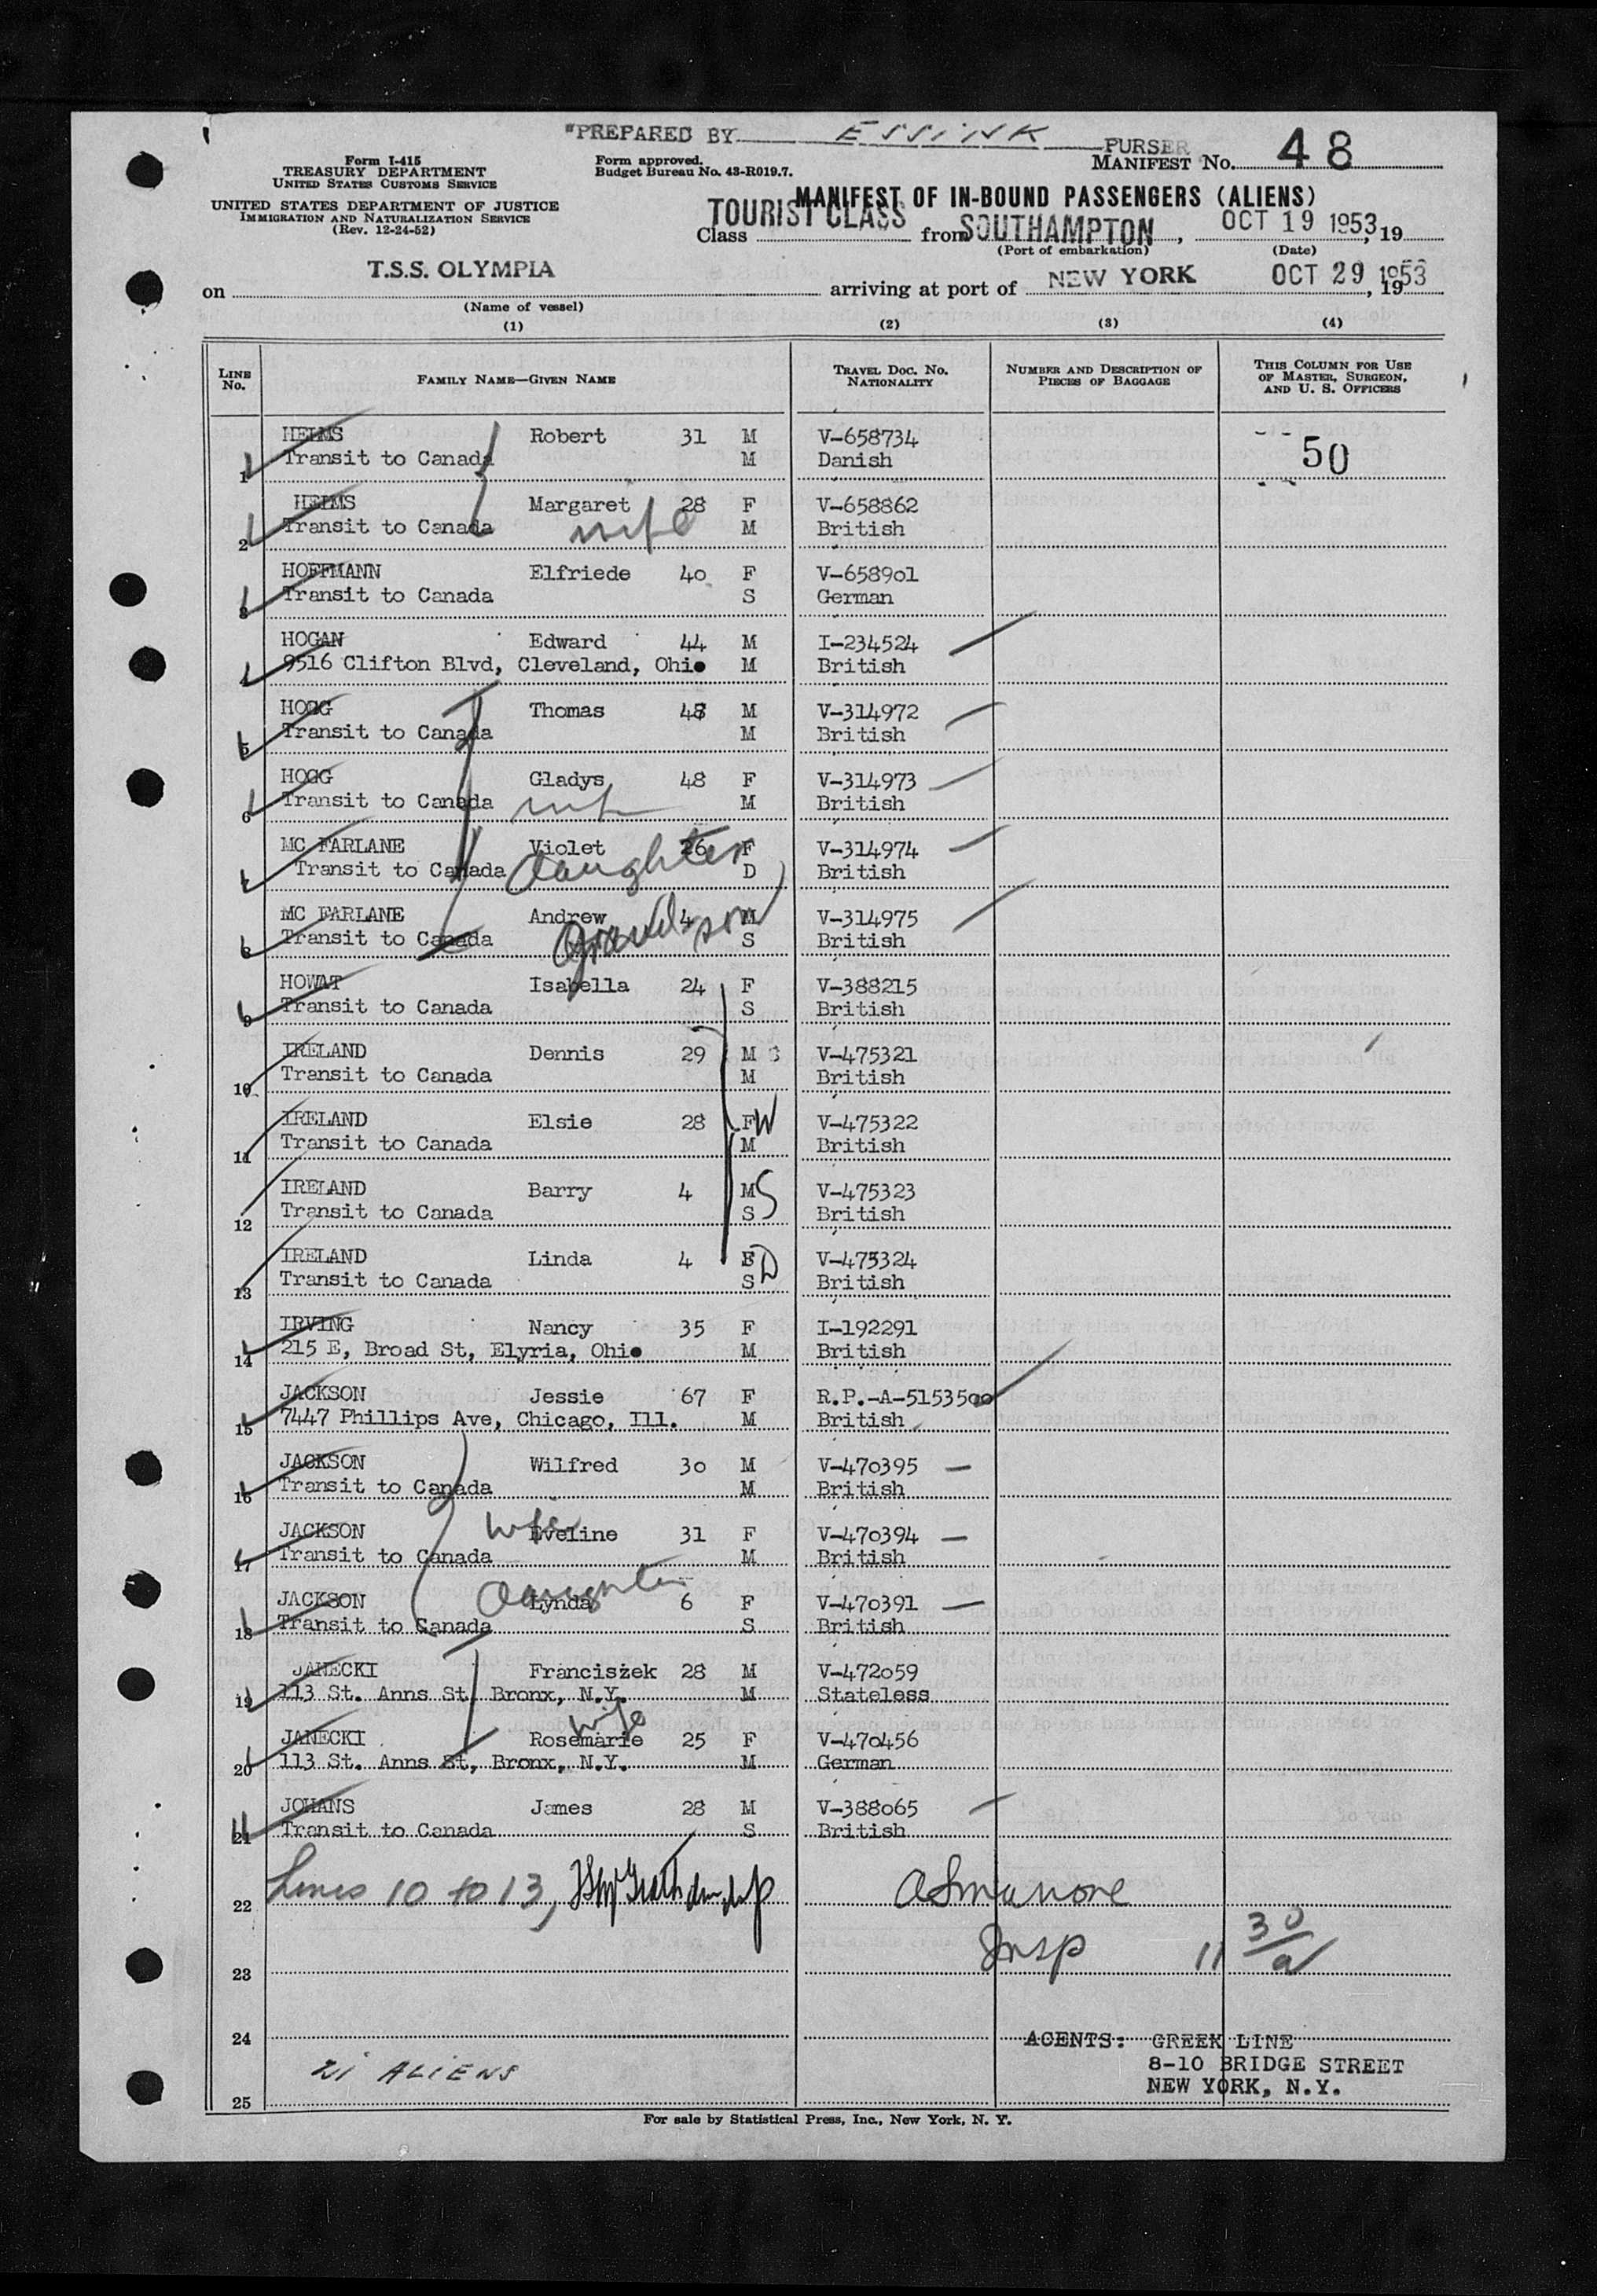 "PREPARED BY ESSINK PURSER
Form I-415
TREASURY DEPARTMENT
UNITED STATES CUSTOMS SERVICE
UNITED STATES DEPARTMENT OF JUSTICE
IMMIGRATION AND NATURALIZATION SERVICE
(Rev. 12-24-52)
Form approved.
Budget Bureau No. 43-R019.7.
MANIFEST No. 48
MANIFEST OF IN-BOUND PASSENGERS (ALIENS)
Class TOURIST CLASS from SOUTHAMPTON, OCT 19 1953, 19
(Port of embarkation) (Date)
on T.S.S. OLYMPIA arriving at port of NEW YORK OCT 29 1953, 19
(Name of vessel)
(1) (2) (3) (4)
LINE No. FAMILY NAME—GIVEN NAME TRAVEL DOC. No. NATIONALITY NUMBER AND DESCRIPTION OF PIECES OF BAGGAGE THIS COLUMN FOR USE OF MASTER, SURGEON, AND U. S. OFFICERS
HELMS Robert 31 M V-658734 50
1 Transit to Canada M Danish
HELMS Margaret 28 F V-658862
2 Transit to Canada wife M British
HOFFMANN Elfriede 40 F V-658901
3 Transit to Canada S German
HOGAN Edward 44 M I-234524
4 9516 Clifton Blvd, Cleveland, Ohio M British
HOGG Thomas 48 M V-314972
5 Transit to Canada M British
HOGG Gladys 48 F V-314973
6 Transit to Canada wife M British
MC FARLANE Violet 26 F V-314974
7 Transit to Canada Daughter D British
MC FARLANE Andrew 4 M V-314975
8 Transit to Canada Grandson S British
HOWAT Isabella 24 F V-388215
9 Transit to Canada S British
IRELAND Dennis 29 M V-475321
10 Transit to Canada M British
IRELAND Elsie 28 F W V-475322
11 Transit to Canada M British
IRELAND Barry 4 M S V-475323
12 Transit to Canada S British
IRELAND Linda 4 F D V-475324
13 Transit to Canada S British
IRVING Nancy 35 F I-192291
14 215 E, Broad St, Elyria, Ohio M British
JACKSON Jessie 67 F R.P.-A-5153500
15 7447 Phillips Ave, Chicago, Ill. M British
JACKSON Wilfred 30 M V-470395
16 Transit to Canada M British
JACKSON wife Eveline 31 F V-470394
17 Transit to Canada M British
JACKSON Daughter Lynda 6 F V-470391
18 Transit to Canada S British
JANECKI Franciszek 28 M V-472059
19 113 St. Anns St, Bronx, N.Y. M Stateless
JANECKI wife Rosemarie 25 F V-470456
20 113 St. Anns St, Bronx, N.Y. M German
JOHANS James 28 M V-388065
21 Transit to Canada S British
22 Lines 10 to 13,
23 Insp 11 30/a
24 AGENTS: GREEK LINE
8-10 BRIDGE STREET
21 ALIENS NEW YORK, N.Y.
25
For sale by Statistical Press, Inc., New York, N. Y.